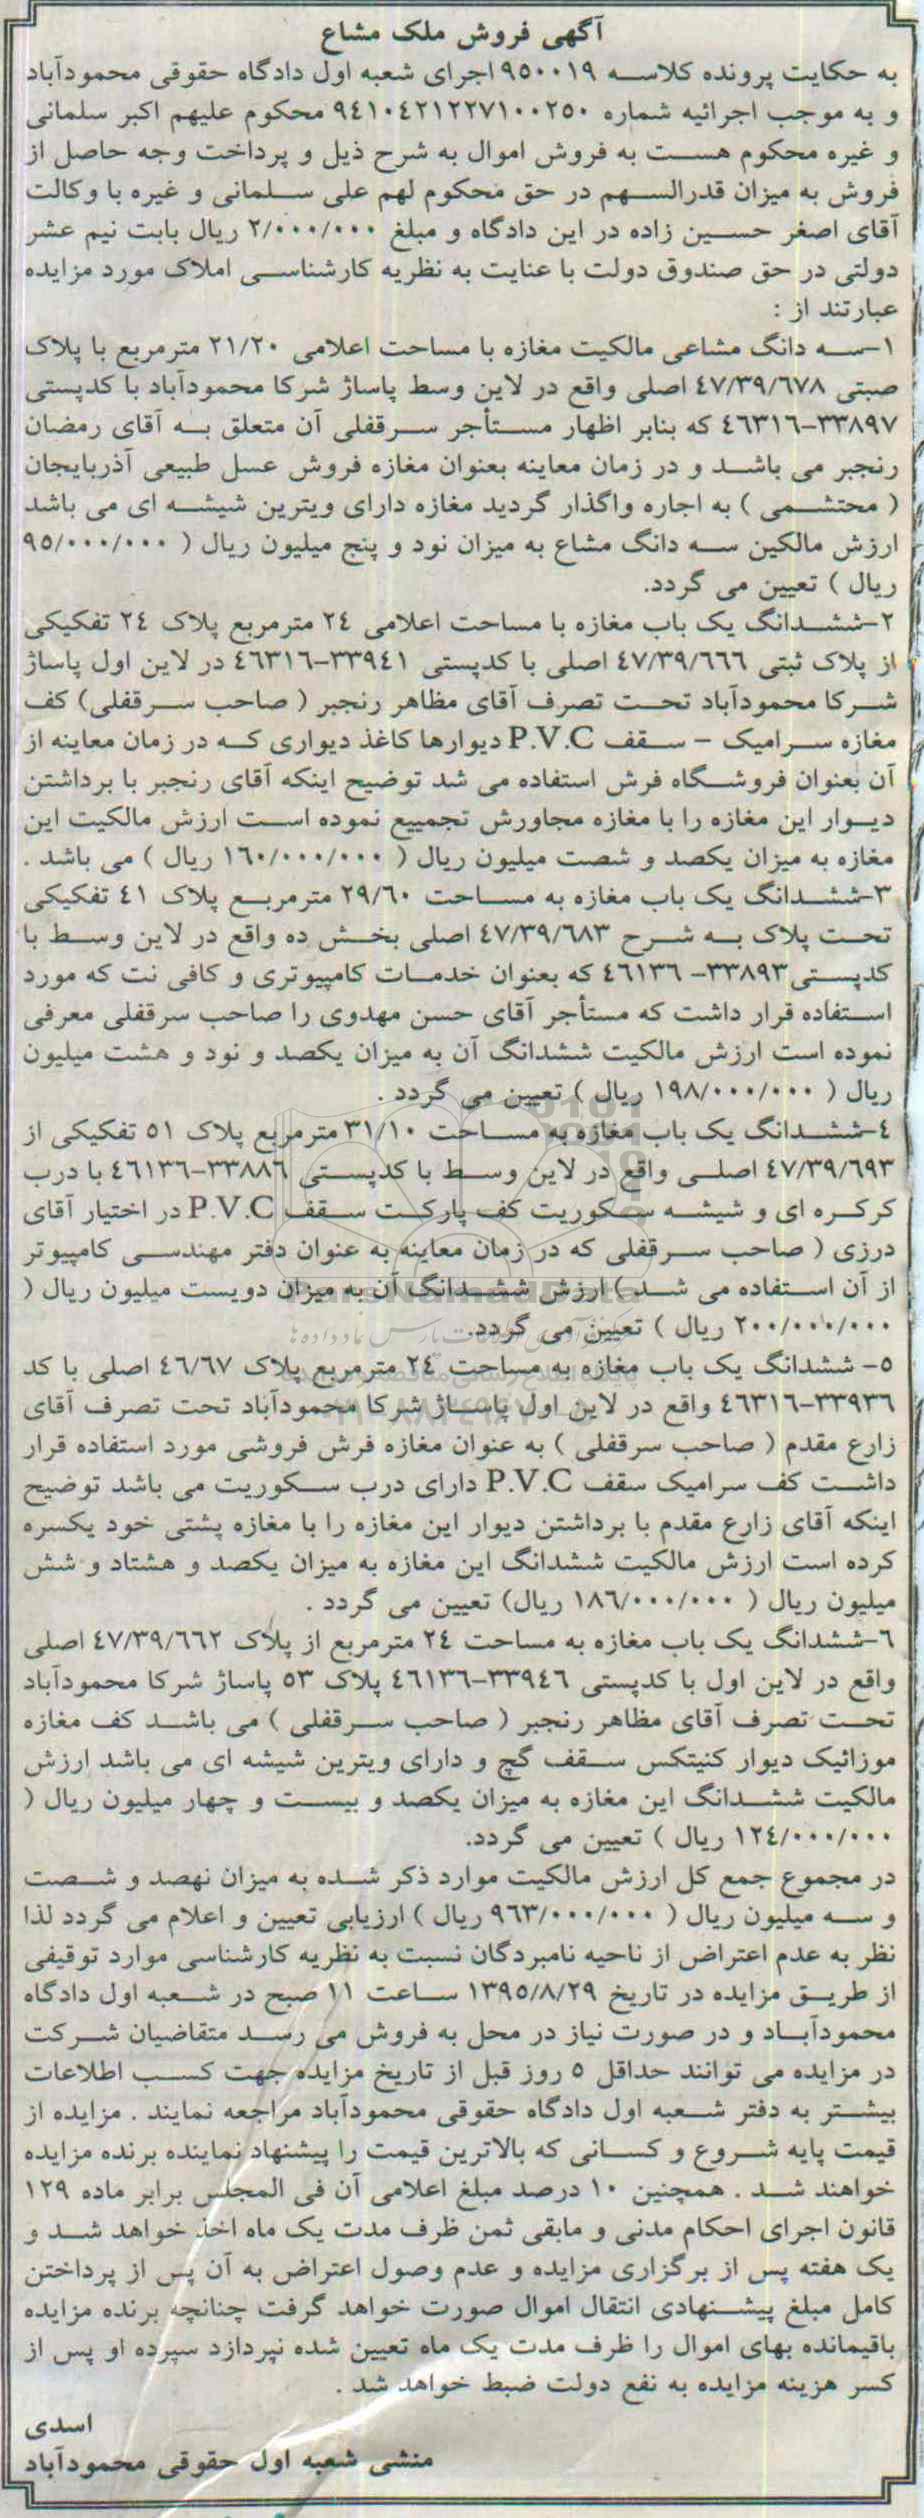 آگهی فروش ملک مشاع
به حکایت پرونده کلاسه ۹۵۰۰۱۹ اجرای شعبه اول دادگاه حقوقی محمودآباد
و به موجب اجرائیه شماره ۹٤۱۰٤۲۱۲۲۷۱۰۰۲۵۰ محکوم علیهم اکبر سلمانی
و غیره محکوم هست به فروش اموال به شرح ذیل و پرداخت وجه حاصل از
فروش به میزان قدرالسهم در حق محکوم لهم علی سلمانی و غیره با وکالت
آقای اصغر حسین زاده در این دادگاه و مبلغ ۲/۰۰۰/۰۰۰ ریال بابت نیم عشر
دولتی در حق صندوق دولت با عنایت به نظریه کارشناسی املاک مورد مزایده
عبارتند از :
۱-سه دانگ مشاعی مالکیت مغازه با مساحت اعلامی ۲۱/۲۰ مترمربع با پلاک
صبتی ٤۷/۳۹/٦۷۸ اصلی واقع در لاین وسط پاساژ شرکا محمودآباد با کدپستی
۳۳۸۹۷-٤٦۳۱٦ که بنابر اظهار مستأجر سرقفلی آن متعلق به آقای رمضان
رنجبر می باشد و در زمان معاینه بعنوان مغازه فروش عسل طبیعی آذربایجان
( محتشمی ) به اجاره واگذار گردید مغازه دارای ویترین شیشه ای می باشد
ارزش مالکین سه دانگ مشاع به میزان نود و پنج میلیون ریال ( ۹۵/۰۰۰/۰۰۰
ریال ) تعیین می گردد.
۲-ششدانگ یک باب مغازه با مساحت اعلامی ۲٤ مترمربع پلاک ۲٤ تفکیکی
از پلاک ثبتی ٤۷/۳۹/٦٦٦ اصلی با کدپستی ۳۳۹٤۱-٤٦۳۱٦ در لاین اول پاساژ
شرکا محمودآباد تحت تصرف آقای مظاهر رنجبر ( صاحب سرقفلی) کف
مغازه سرامیک - سقف P.V.C دیوارها کاغذ دیواری که در زمان معاینه از
آن بعنوان فروشگاه فرش استفاده می شد توضیح اینکه آقای رنجبر با برداشتن
دیوار این مغازه را با مغازه مجاورش تجمیع نموده است ارزش مالکیت این
مغازه به میزان یکصد و شصت میلیون ریال ( ۱٦۰/۰۰۰/۰۰۰ ریال ) می باشد .
۳-ششدانگ یک باب مغازه به مساحت ۲۹/٦۰ مترمربع پلاک ٤۱ تفکیکی
تحت پلاک به شرح ٤۷/۳۹/٦۸۳ اصلی بخش ده واقع در لاین وسط با
کدپستی۳۳۸۹۳- ٤٦۱۳٦ که بعنوان خدمات کامپیوتری و کافی نت که مورد
استفاده قرار داشت که مستأجر آقای حسن مهدوی را صاحب سرقفلی معرفی
نموده است ارزش مالکیت ششدانگ آن به میزان یکصد و نود و هشت میلیون
ریال ( ۱۹۸/۰۰۰/۰۰۰ ریال ) تعیین می گردد .
٤-ششدانگ یک باب مغازه به مساحت ۳۱/۱۰ مترمربع پلاک ۵۱ تفکیکی از
٤۷/۳۹/٦۹۳ اصلی واقع در لاین وسط با کدپستی ۳۳۸۸٦-٤٦۱۳٦ با درب
کرکره ای و شیشه سکوریت کف پارکت سقف P.V.C در اختیار آقای
درزی ( صاحب سرقفلی که در زمان معاینه به عنوان دفتر مهندسی کامپیوتر
از آن استفاده می شد ) ارزش ششدانگ آن به میزان دویست میلیون ریال (
۲۰۰/۰۰۰/۰۰۰ ریال ) تعیین می گردد.
۵- ششدانگ یک باب مغازه به مساحت ۲٤ مترمربع پلاک ٤٦/٦۷ اصلی با کد
۳۳۹۳٦-٤٦۳۱٦ واقع در لاین اول پاساژ شرکا محمودآباد تحت تصرف آقای
زارع مقدم ( صاحب سرقفلی ) به عنوان مغازه فرش فروشی مورد استفاده قرار
داشت کف سرامیک سقف P.V.C دارای درب سکوریت می باشد توضیح
اینکه آقای زارع مقدم با برداشتن دیوار این مغازه را با مغازه پشتی خود یکسره
کرده است ارزش مالکیت ششدانگ این مغازه به میزان یکصد و هشتاد و شش
میلیون ریال ( ۱۸٦/۰۰۰/۰۰۰ ریال) تعیین می گردد .
٦-ششدانگ یک باب مغازه به مساحت ۲٤ مترمربع از پلاک ٤۷/۳۹/٦٦۲ اصلی
واقع در لاین اول با کدپستی ۳۳۹٤٦-٤٦۱۳٦ پلاک ۵۳ پاساژ شرکا محمودآباد
تحت تصرف آقای مظاهر رنجبر ( صاحب سرقفلی ) می باشد کف مغازه
موزائیک دیوار کنیتکس سقف گچ و دارای ویترین شیشه ای می باشد ارزش
مالکیت ششدانگ این مغازه به میزان یکصد و بیست و چهار میلیون ریال (
۱۲٤/۰۰۰/۰۰۰ ریال ) تعیین می گردد.
در مجموع جمع کل ارزش مالکیت موارد ذکر شده به میزان نهصد و شصت
و سه میلیون ریال ( ۹٦۳/۰۰۰/۰۰۰ ریال ) ارزیابی تعیین و اعلام می گردد لذا
نظر به عدم اعتراض از ناحیه نامبردگان نسبت به نظریه کارشناسی موارد توقیفی
از طریق مزایده در تاریخ ۱۳۹۵/۸/۲۹ ساعت ۱۱ صبح در شعبه اول دادگاه
محمودآباد و در صورت نیاز در محل به فروش می رسد متقاضیان شرکت
در مزایده می توانند حداقل ۵ روز قبل از تاریخ مزایده جهت کسب اطلاعات
بیشتر به دفتر شعبه اول دادگاه حقوقی محمودآباد مراجعه نمایند . مزایده از
قیمت پایه شروع و کسانی که بالاترین قیمت را پیشنهاد نماینده برنده مزایده
خواهند شد . همچنین ۱۰ درصد مبلغ اعلامی آن فی المجلس برابر ماده ۱۲۹
قانون اجرای احکام مدنی و مابقی ثمن ظرف مدت یک ماه اخذ خواهد شد و
یک هفته پس از برگزاری مزایده و عدم وصول اعتراض به آن پس از پرداختن
کامل مبلغ پیشنهادی انتقال اموال صورت خواهد گرفت چنانچه برنده مزایده
باقیمانده بهای اموال را ظرف مدت یک ماه تعیین شده نپردازد سپرده او پس از
کسر هزینه مزایده به نفع دولت ضبط خواهد شد .
اسدی
منشی شعبه اول حقوقی محمودآباد